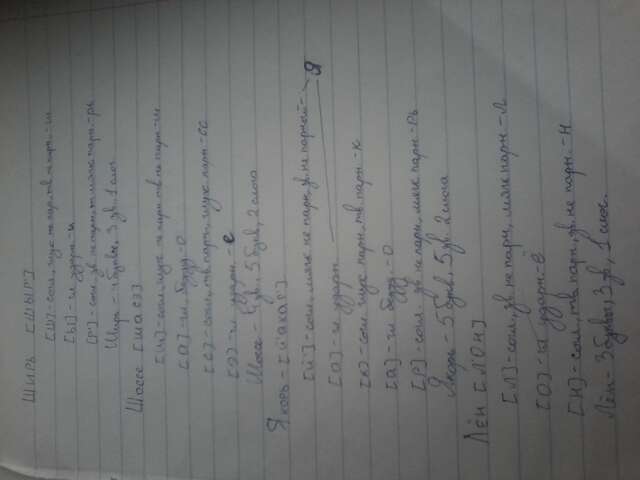 Ширь [шыр']
[ш]-согл., глух не пар, тв не парн.-ш
[ы]-гл. ударн.-и
[р']-согл. зв. не парн, мягк парн.-рь
Ширь - 4 буквы, 3 зв. 1 слог.
Шоссе [шасэ]
[ш]-согл., глух не парн тв не парн-ш
[а]-гл безуд.-о
[с]-согл., тв парн, глух парн-сс
[э]-гл ударн.-е
Шоссе - 4 зв., 5 букв, 2 слога
Якорь-[й'акар']
[й']-согл., мягк не парн, зв. не парный-
[а]-гл ударн я
[к]-согл глух парн, тв. парн-к
[а]-гл безуд.-о
[р]-согл. зв не парн, мягк парн-рь
Якорь - 5 букв, 5 зв. 2 слога
Лён [л'он]
[л]-согл., зв не парн, мягк парн-л
[о]-гл ударн-ё
[н]-согл., тв. парн, зв. не парн.-н
Лён-3 буквы, 3 зв, 1 слог.